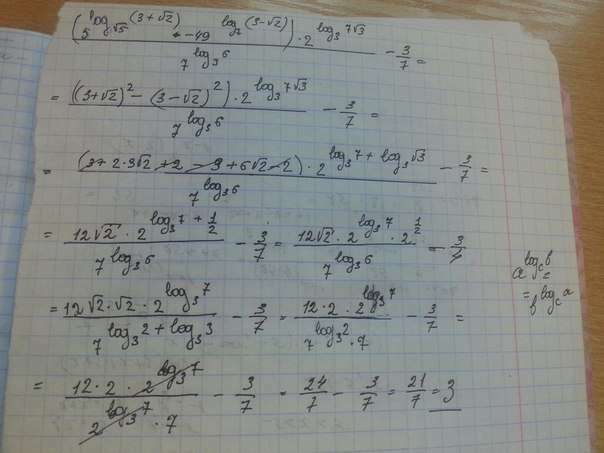 (5^{log_{√5}(3+√2)} - 49^{log_7(3-√2)}) · 2^{log_3 7√3} / 7^{log_3 6} - 3/7 =
= ((3+√2)^2 - (3-√2)^2) · 2^{log_3 7√3} / 7^{log_3 6} - 3/7 =
= (9 + 2·3√2 + 2 - 9 + 6√2 - 2) · 2^{log_3 7 + log_3 √3} / 7^{log_3 6} - 3/7 =
= 12√2 · 2^{log_3 7 + 1/2} / 7^{log_3 6} - 3/7 = 12√2 · 2^{log_3 7} · 2^{1/2} / 7^{log_3 6} - 3/7
a^{log_c b} =
= b^{log_c a}
= 12√2 · √2 · 2^{log_3 7} / 7^{log_3 2 + log_3 3} - 3/7 = 12 · 2 · 2^{log_3 7} / 7^{log_3 2} · 7 - 3/7 =
= 12 · 2 · 2^{log_3 7} / 2^{log_3 7} · 7 - 3/7 = 24/7 - 3/7 = 21/7 = 3